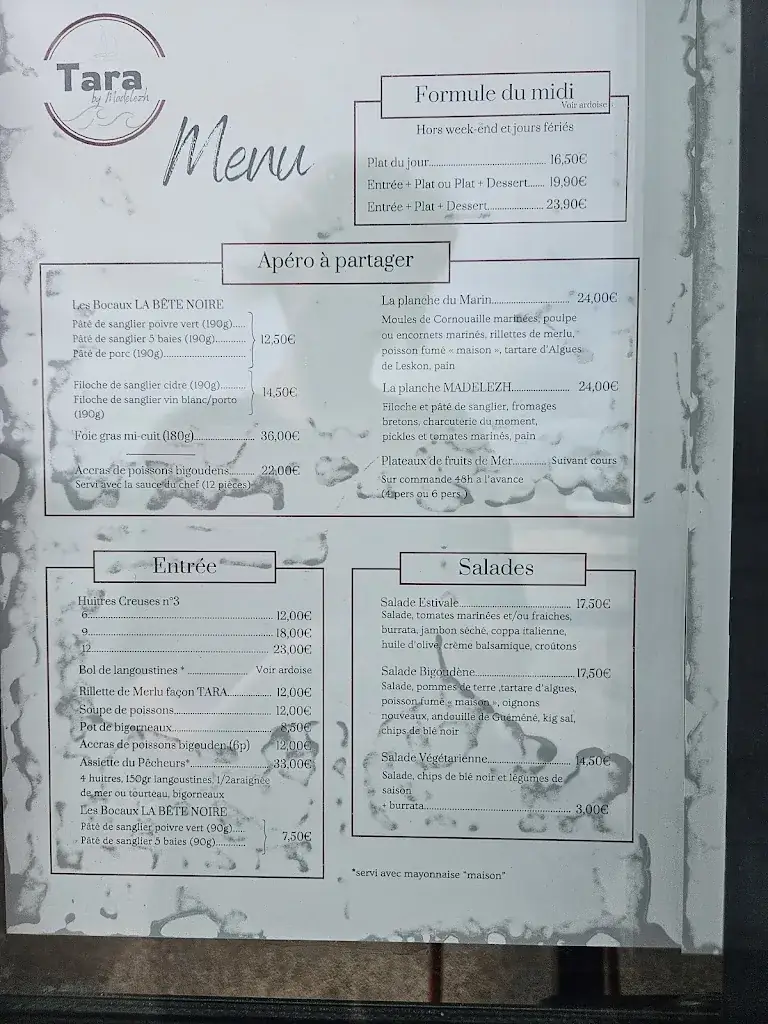 Tara
by Madelezh
Menu
Formule du midi
Voir ardoise
Hors week-end et jours fériés
Plat du jour.......... 16,50€
Entrée + Plat ou Plat + Dessert...... 19,90€
Entrée + Plat + Dessert.......... 23,90€
Apéro à partager
Les Bocaux LA BÊTE NOIRE
Pâté de sanglier poivre vert (190g).....
Pâté de sanglier 5 baies (190g)..........
Pâté de porc (190g)..........
12,50€
Filoche de sanglier cidre (190g)........
Filoche de sanglier vin blanc/porto
(190g)
14,50€
Foie gras mi-cuit (180g).......... 36,00€
Accras de poissons bigoudens......... 22,00€
Servi avec la sauce du chef (12 pièces)
La planche du Marin.......... 24,00€
Moules de Cornouaille marinées, poulpe
ou encornets marinés, rillettes de merlu,
poisson fumé « maison », tartare d'Algues
de Leskon, pain
La planche MADELEZH.......... 24,00€
Filoche et pâté de sanglier, fromages
bretons, charcuterie du moment,
pickles et tomates marinés, pain
Plateaux de fruits de Mer.......... Suivant cours
Sur commande 48h a l'avance
(4 pers ou 6 pers )
Entrée
Huitres Creuses n°3
6.......... 12,00€
9.......... 18,00€
12.......... 23,00€
Bol de langoustines * .......... Voir ardoise
Rillette de Merlu façon TARA.......... 12,00€
Soupe de poissons.......... 12,00€
Pot de bigorneaux.......... 8,50€
Accras de poissons bigouden (6p) 12,00€
Assiette du Pêcheurs*.......... 33,00€
4 huitres, 150gr langoustines, 1/2araignée
de mer ou tourteau, bigorneaux
Les Bocaux LA BÊTE NOIRE
Pâté de sanglier poivre vert (90g).....
Pâté de sanglier 5 baies (90g)..........
7,50€
Salades
Salade Estivale.......... 17,50€
Salade, tomates marinées et/ou fraiches,
burrata, jambon séché, coppa italienne,
huile d'olive, crème balsamique, croûtons
Salade Bigoudène.......... 17,50€
Salade, pommes de terre ,tartare d'algues,
poisson fumé « maison », oignons
nouveaux, andouille de Guémené, kig sal,
chips de blé noir
Salade Végétarienne.......... 14,50€
Salade, chips de blé noir et légumes de
saison
+ burrata.......... 3,00€
*servi avec mayonnaise "maison"